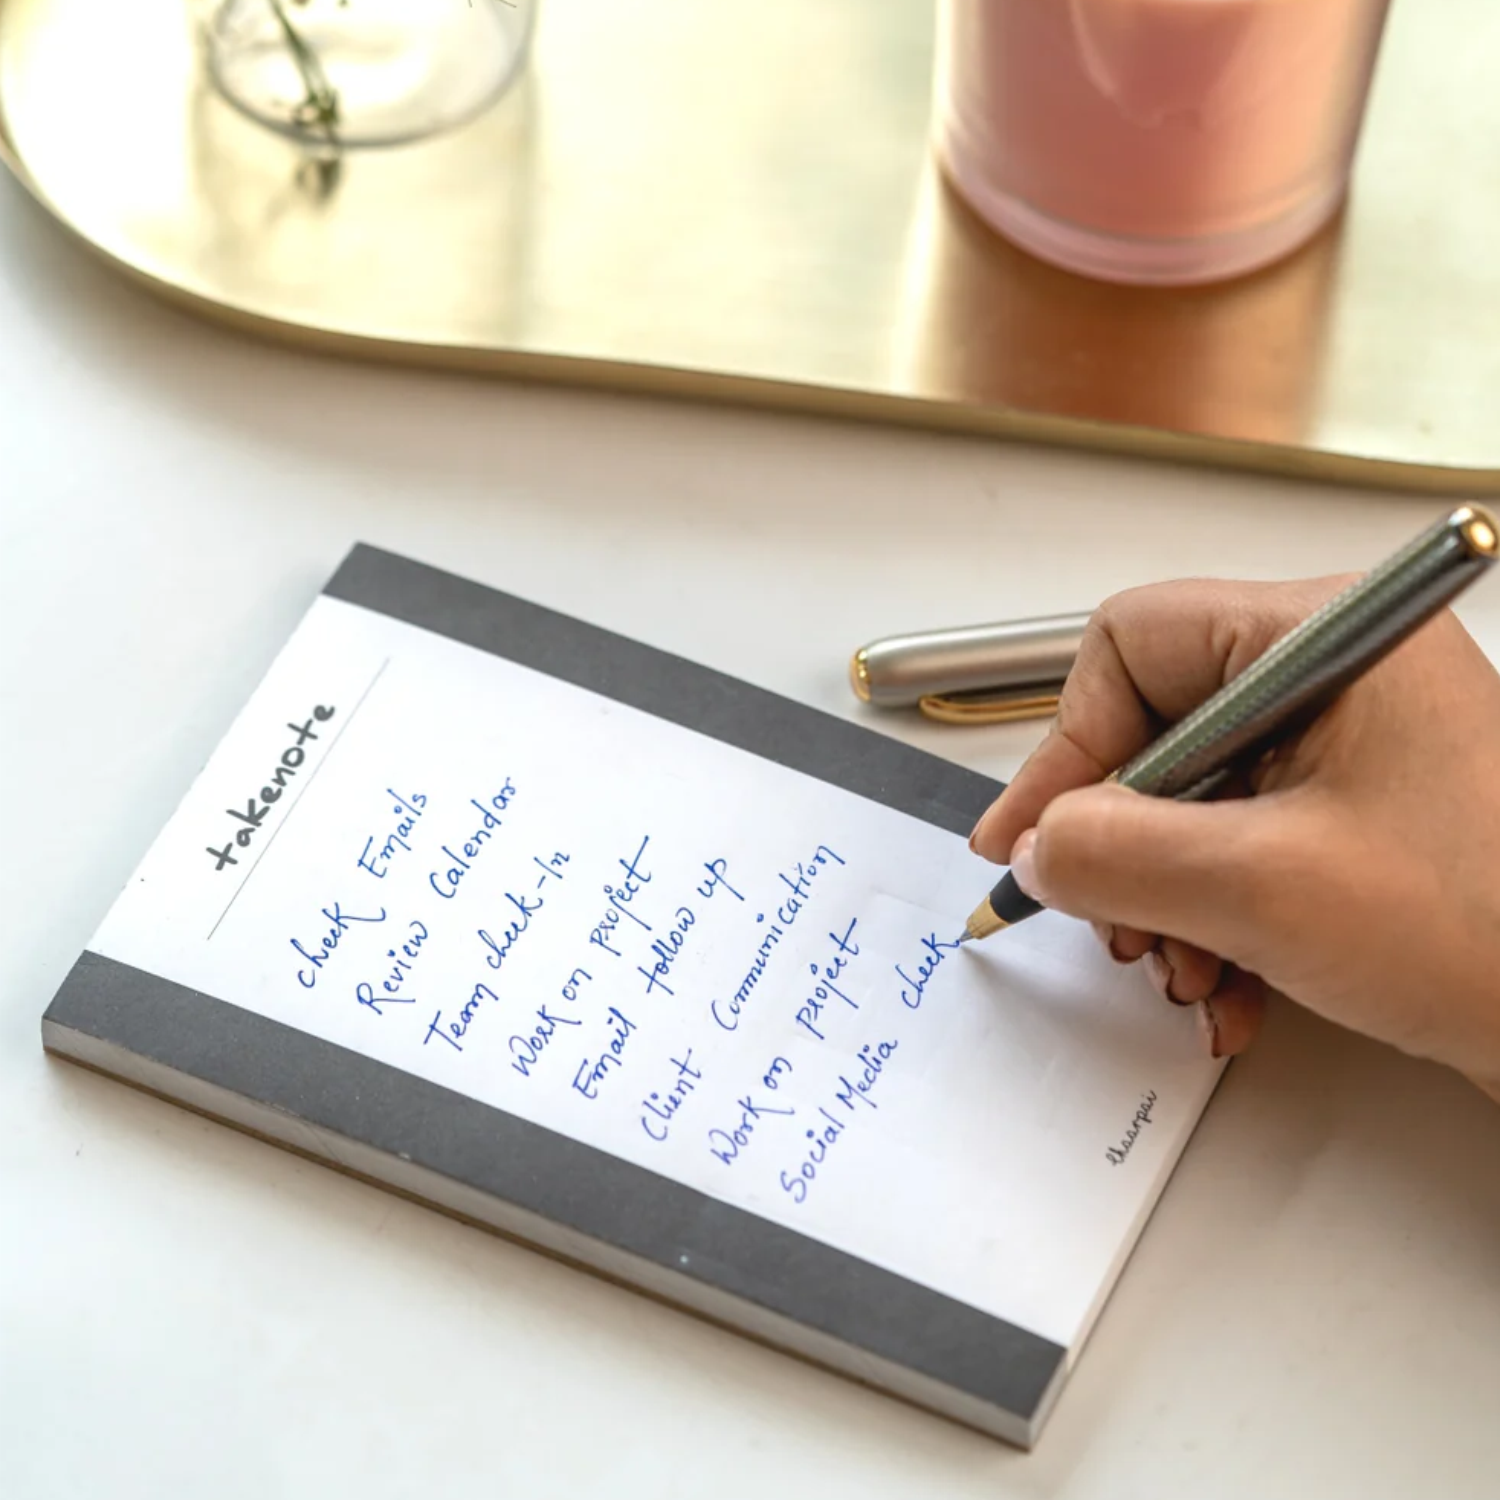 takenote
check Emails
Review Calendar
Team check-In
Work on project
Email follow up
Client Communication
Work on project
Social Media check